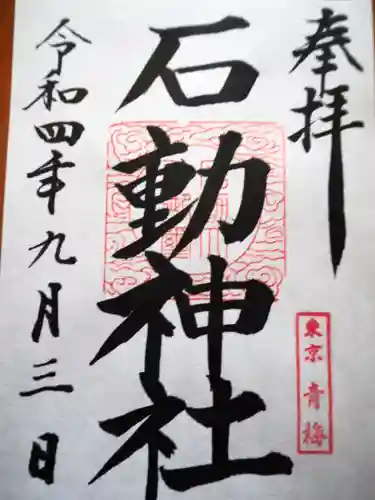 奉拝
東京青梅
石動神社
令和四年九月三日